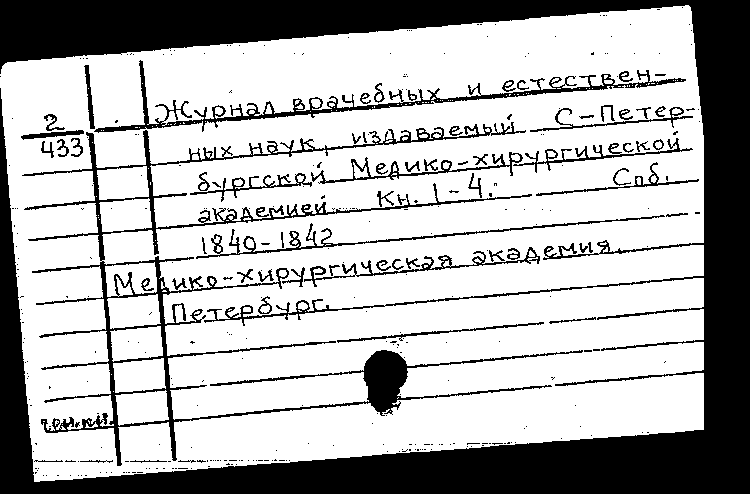 2 Журнал врачебных и естествен-
433 ных наук, издаваемый С-Петер-
бургской Медико-хирургической
академией Кн. 1-4. Спб.
1840-1842
Медико-хирургическая академия.
Петербург.
ген.кн.